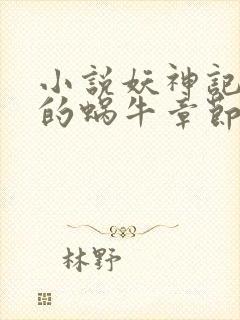 小説妖神記
的蝸牛章節
林野